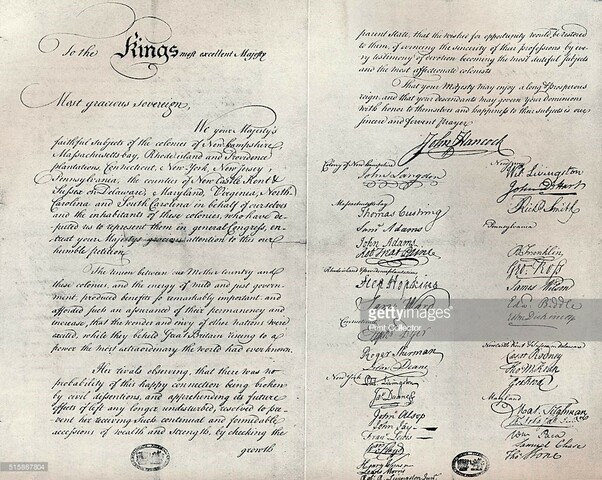 To the Kings most excellent Majesty
Most gracious Sovereign,
We your Majesty's
faithful subjects of the colonies of New hampshire
Massachusetts bay, Rhode island and Providence
plantations, Connecticut, New York, New Jersey
Pennsylvania, the counties of New Castle Kent &
Sussex on Delaware, Maryland, Virginia, North
Carolina and South Carolina in behalf of ourselves
and the inhabitants of these colonies, who have de-
puted us to represent them in general Congress, en-
treat your Majestys gracious attention to this our
humble petition.
The union between our Mother Country and
these colonies, and the energy of mild and just govern-
ment, produced benefits so remarkably important and
afforded such an assurance of their permanency and
increase, that the wonder and envy of other nations were
excited, while they beheld Great Britain rising to a
power the most extraordinary the world had ever known.
Her rivals observing, that there was no
probability of this happy connection being broken
by civil dissentions, and apprehending its future
effects if left any longer undisturbed, resolved to pre-
vent her receiving such continual and formidable
accessions of wealth and strength, by checking the
growth
parent State, that the wished for opportunity would be restored
to them, of evincing the sincerity of their professions by eve-
ry testimony of devotion becoming the most dutiful subjects
and the most affectionate colonists.
That your Majesty may enjoy a long & prosperous
reign, and that your descendants may govern your Dominions
with honor to themselves and happiness to their subjects is our
sincere and fervent prayer.
John Hancock
Colony of New hampshire
John Langdon
Massachusetts bay
Thomas Cushing
Saml Adams
John Adams
Robt Treat Paine
Step Hopkins
Sam: Ward
Eliph Dyer
Roger Sherman
Silas Deane
New York
Phil Livingston
Jas Duane
John Alsop
John Jay
Frans Lewis
Wm Floyd
Lewis Morris
Robt R Livingston Junr
Wil Livingston
John D Hart
Richd Smith
Pennsylvania
B Franklin
Geo: Ross
James Wilson
Edwd Biddle
Cæsar Rodney
Tho M:Kean
Geo Read
Maryland
Mat. Tilghman
Wm Paca
Samuel Chase
Thos Stone
gettyimages
Print Collector
515867804